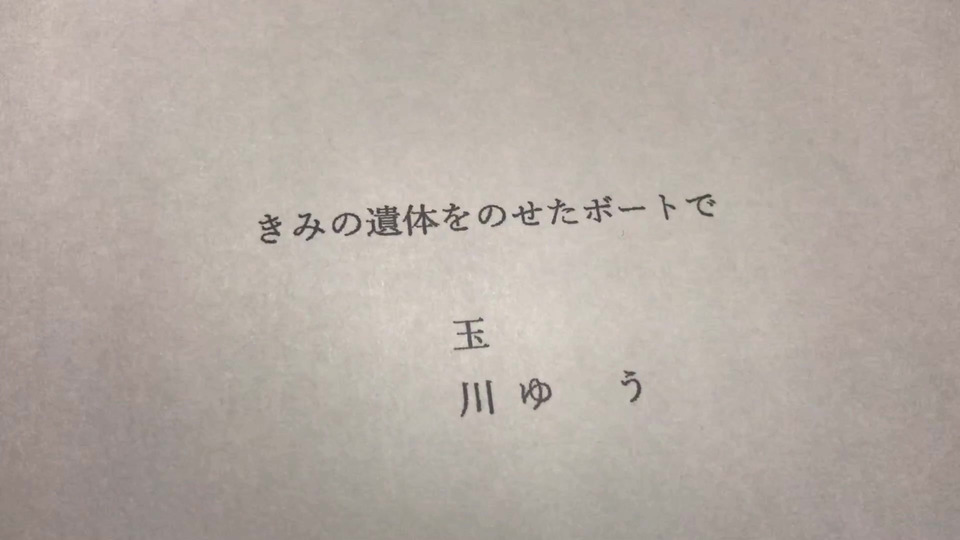 きみの遺体をのせたボートで
玉
川ゆ　う